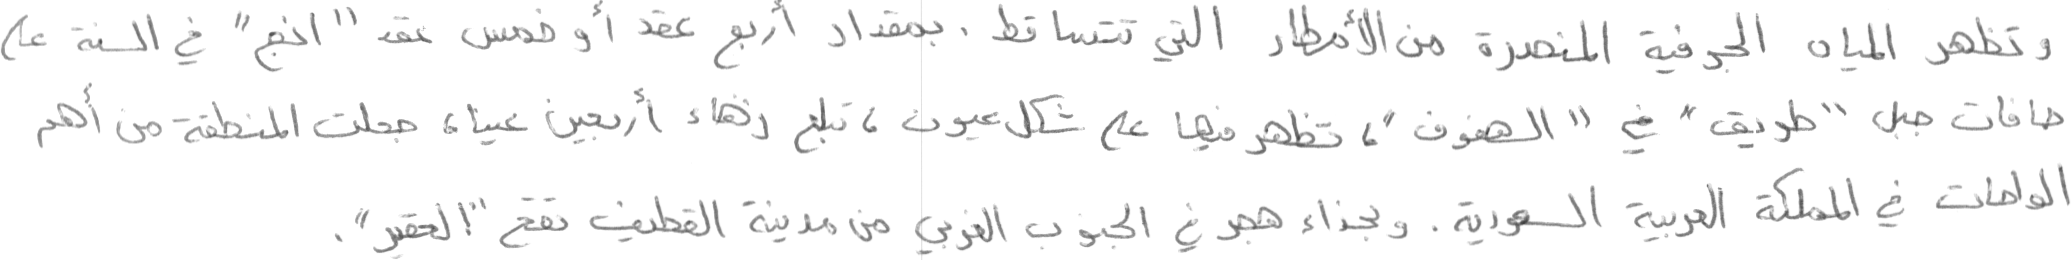 وتظهر المياه الجوفية المنحدرة من الأمطار التي تتساقط، بمقدار أربع عقد أو خمس عقد "انج" في السنة على
حافات جبل "طويق" في "الهفوف"، تظهر فيها على شكل عيون، تبلغ زهاء أربعين عينا، جعلت المنطقة من أهم
الواحات في المملكة العربية السعودية. وبحذاء هجر في الجنوب الغربي من مدينة القطيف تقع "العقير".